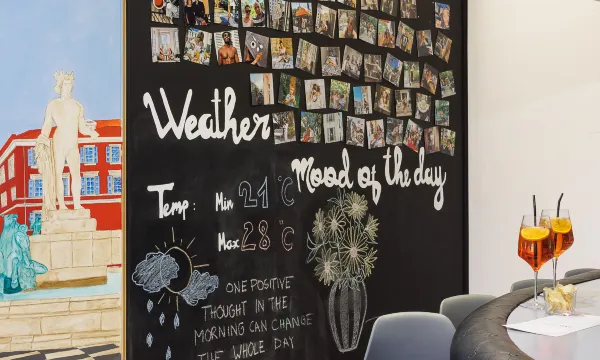 Weather
Mood of the day
Temp: Min 21 C
Max 28 C
ONE POSITIVE
THOUGHT IN THE
MORNING CAN CHANGE
THE WHOLE DAY